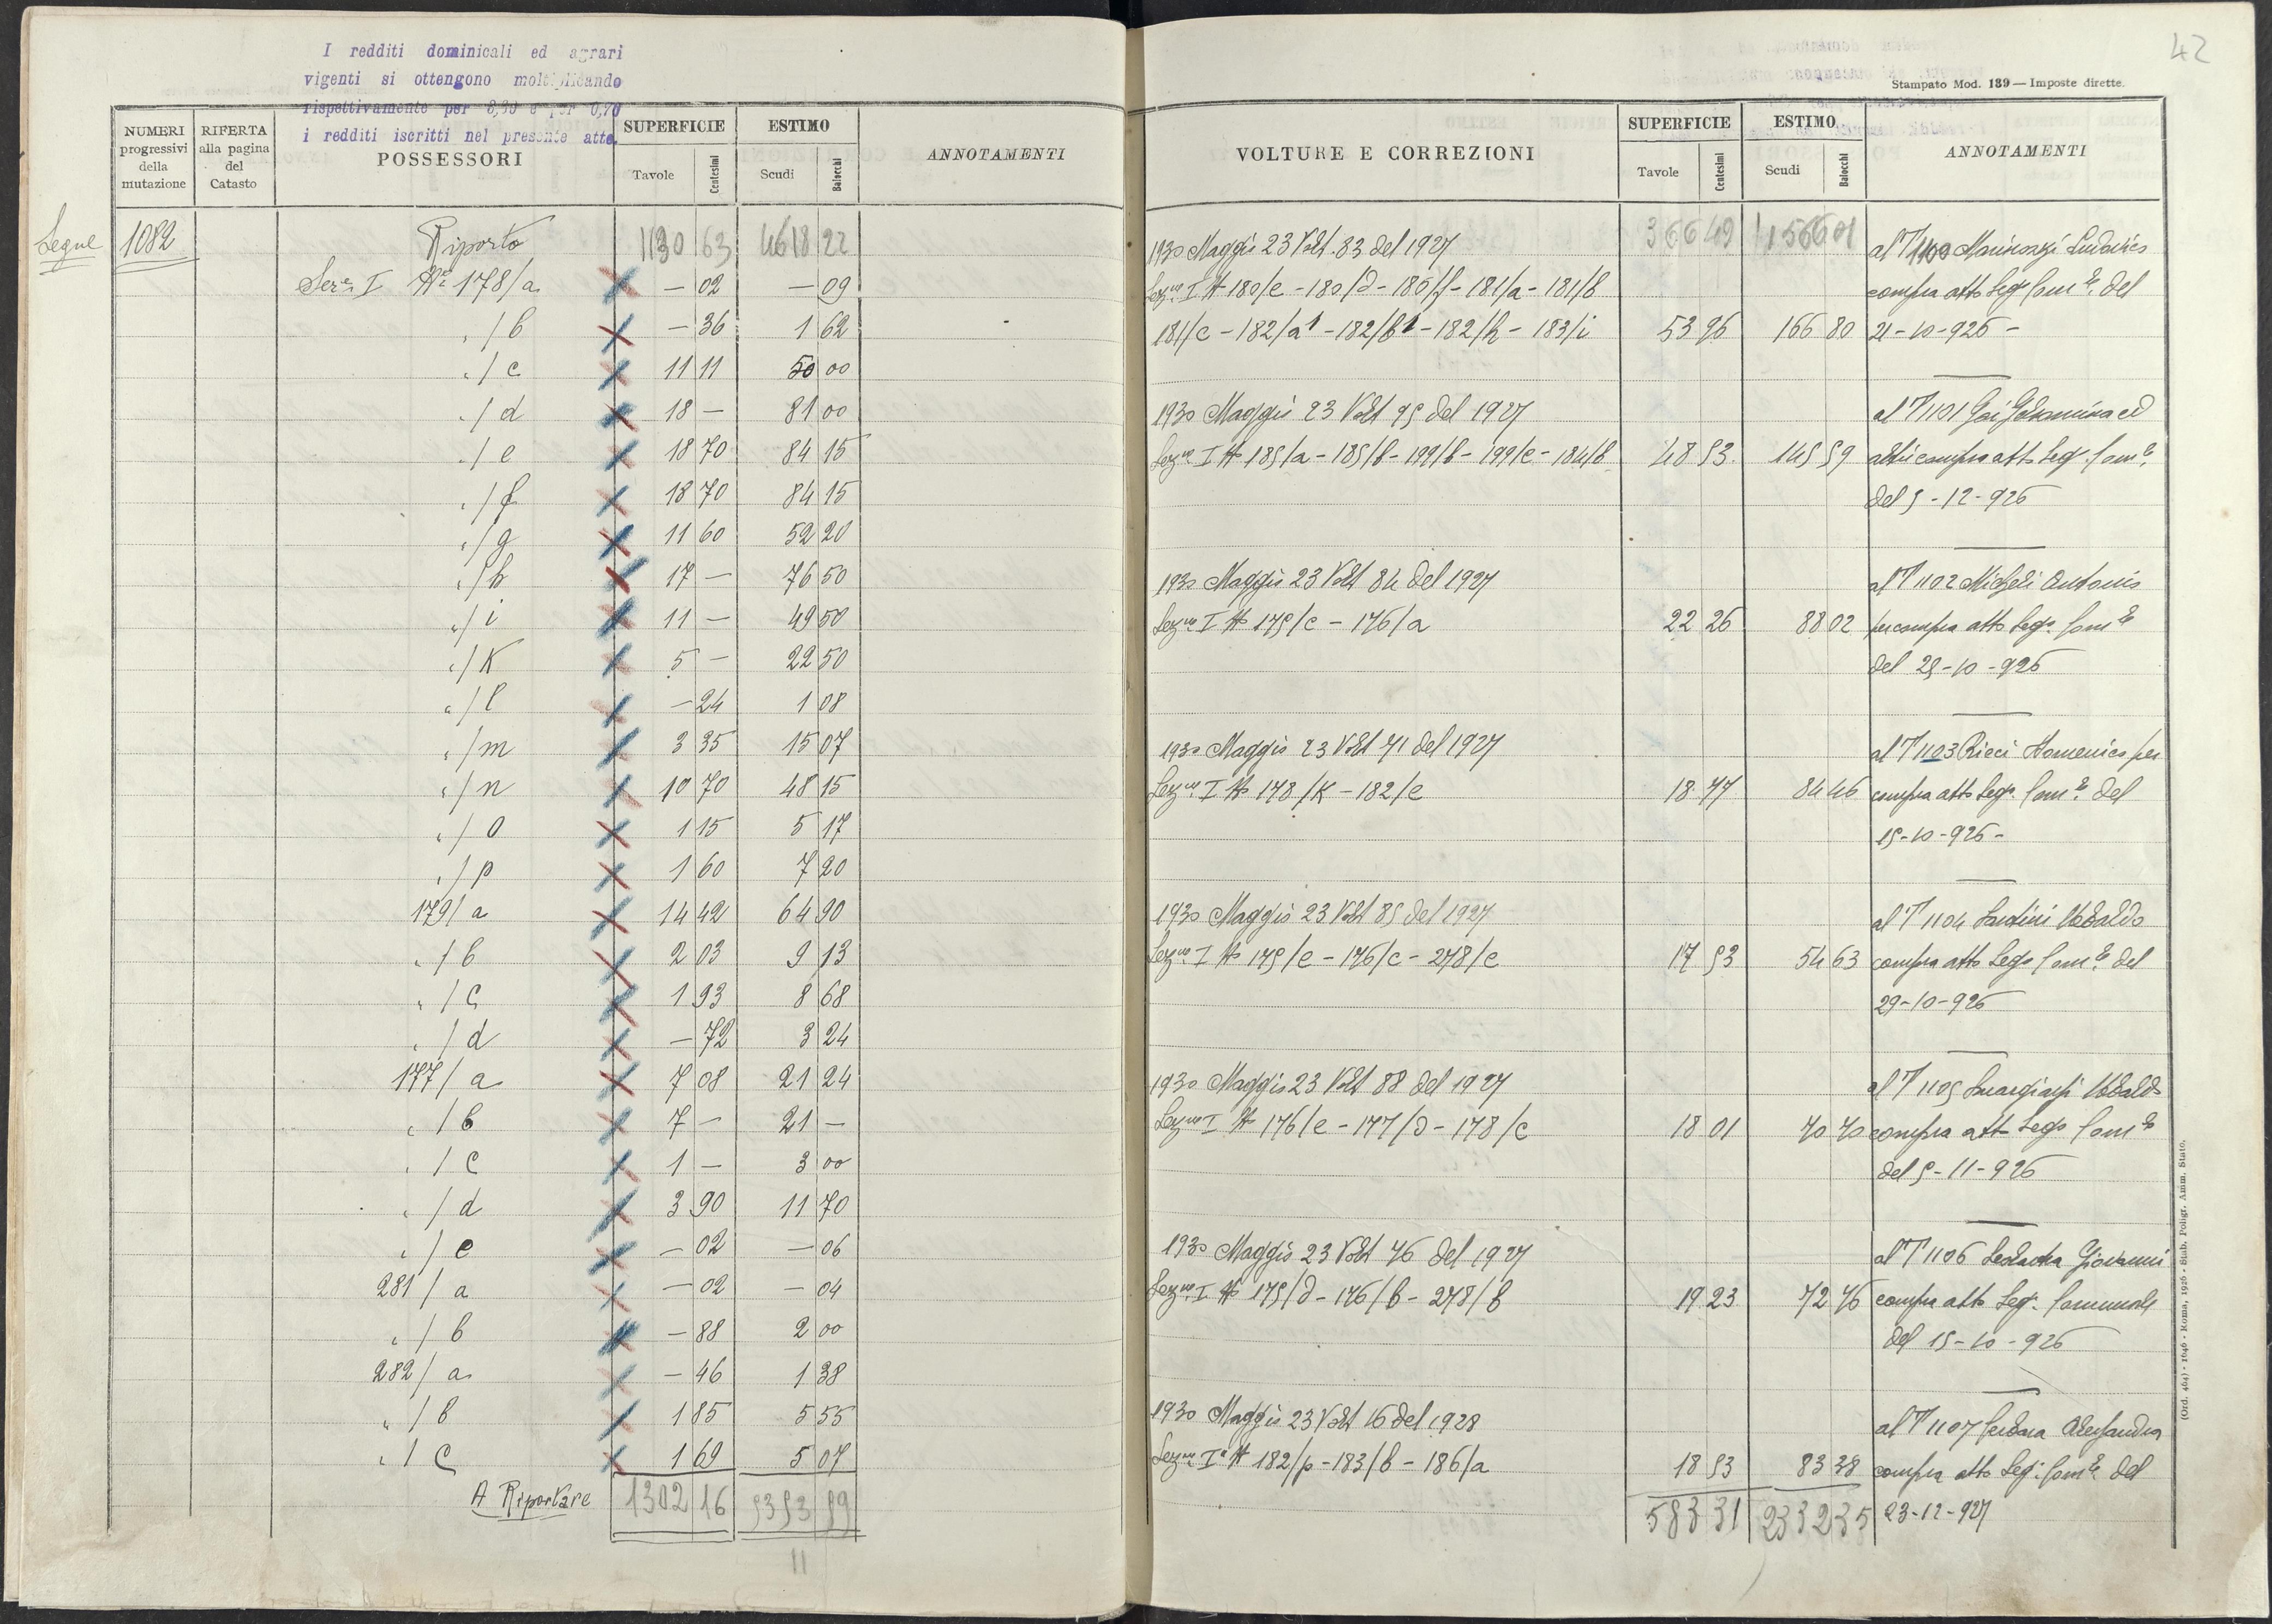 I redditi dominicali ed agrari
vigenti si ottengono moltiplicando
rispettivamente per 8,30 e per 0,70
i redditi iscritti nel presente atto.
NUMERI progressivi della mutazione
RIFERTA alla pagina del Catasto
POSSESSORI
SUPERFICIE Tavole Centesimi
ESTIMO Scudi Baiocchi
ANNOTAMENTI
Segue 1082 Riporto 1130 63 4618 22
Sez.e I N.i 178/a — 02 — 09
" / b — 36 1 62
" / c 11 11 50 00
" / d 18 — 81 00
" / e 18 70 84 15
" / f 18 70 84 15
" / g 11 60 52 20
" / h 17 — 76 50
" / i 11 — 49 50
" / K 5 — 22 50
" / l — 24 1 08
" / m 3 35 15 07
" / n 10 70 48 15
" / o 1 15 5 17
" / p 1 60 7 20
179/ a 14 42 64 90
" / b 2 03 9 13
" / c 1 93 8 68
" / d — 72 3 24
177/ a 7 08 21 24
" / b 7 — 21 —
" / c 1 — 3 00
" / d 3 90 11 70
" / e — 02 — 06
281/ a — 02 — 04
" / b — 88 2 00
282/ a — 46 1 38
" / b 1 85 5 55
" / c 1 69 5 07
A Riportare 1302 16 5353 59
11
42
Stampato Mod. 139 — Imposte dirette.
VOLTURE E CORREZIONI
SUPERFICIE Tavole Centesimi
ESTIMO Scudi Baiocchi
ANNOTAMENTI
1930 Maggio 23 Volt. 83 del 1927 366 49 1566 01 al N 1100 Ludovico
Sez.ne I N 180/e - 180/d - 180/f - 181/a - 181/b compra atto Seg. Com.le del
181/c - 182/a1 - 182/b1 - 182/h - 183/i 53 96 166 80 21-10-926 -
1930 Maggio 23 Volt 95 del 1927 al N 1101 ed
Sez.ne I N 185/a - 185/b - 199/b - 199/c - 184/b 48 53 145 59 altri compra atto Seg. Com.le
del 5-12-926
1930 Maggio 23 Volt 84 del 1927 al N 1102 Micheli Antonio
Sez.ne I N 175/c - 176/a 22 26 88 02 per compra atto Seg. Com.le
del 25-10-926
1930 Maggio 23 Volt 71 del 1927 al N 1103 Ricci Domenico per
Sez.ne I N 178/K - 182/e 18 77 84 46 compra atto Seg. Com.le del
15-10-926 -
1930 Maggio 23 Volt 85 del 1927 al N 1104 Ubaldo
Sez.ne I N 175/e - 176/c - 278/c 17 53 54 63 compra atto Seg. Com.le del
29-10-926
1930 Maggio 23 Volt 88 del 1927 al N 1105 Smargiassi Ubaldo
Sez.ne I N 176/e - 177/d - 178/c 18 01 70 70 compra atto Seg. Com.le
del 5-11-926
1930 Maggio 23 Volt 76 del 1927 al N 1106 Giovanni
Sez.ne I N 175/d - 176/b - 278/b 19 23 72 76 compra atto Seg. Comunale
del 15-10-926
1930 Maggio 23 Volt 16 del 1928 al N 1107 Alessandro
Sez.ne I N 182/p - 183/b - 186/a 18 53 83 38 compra atto Seg. Com.le del
583 31 2332 35 23-12-927
(Ord. 464) - 1646 - Roma, 1926 - Stab. Poligr. Amm. Stato.